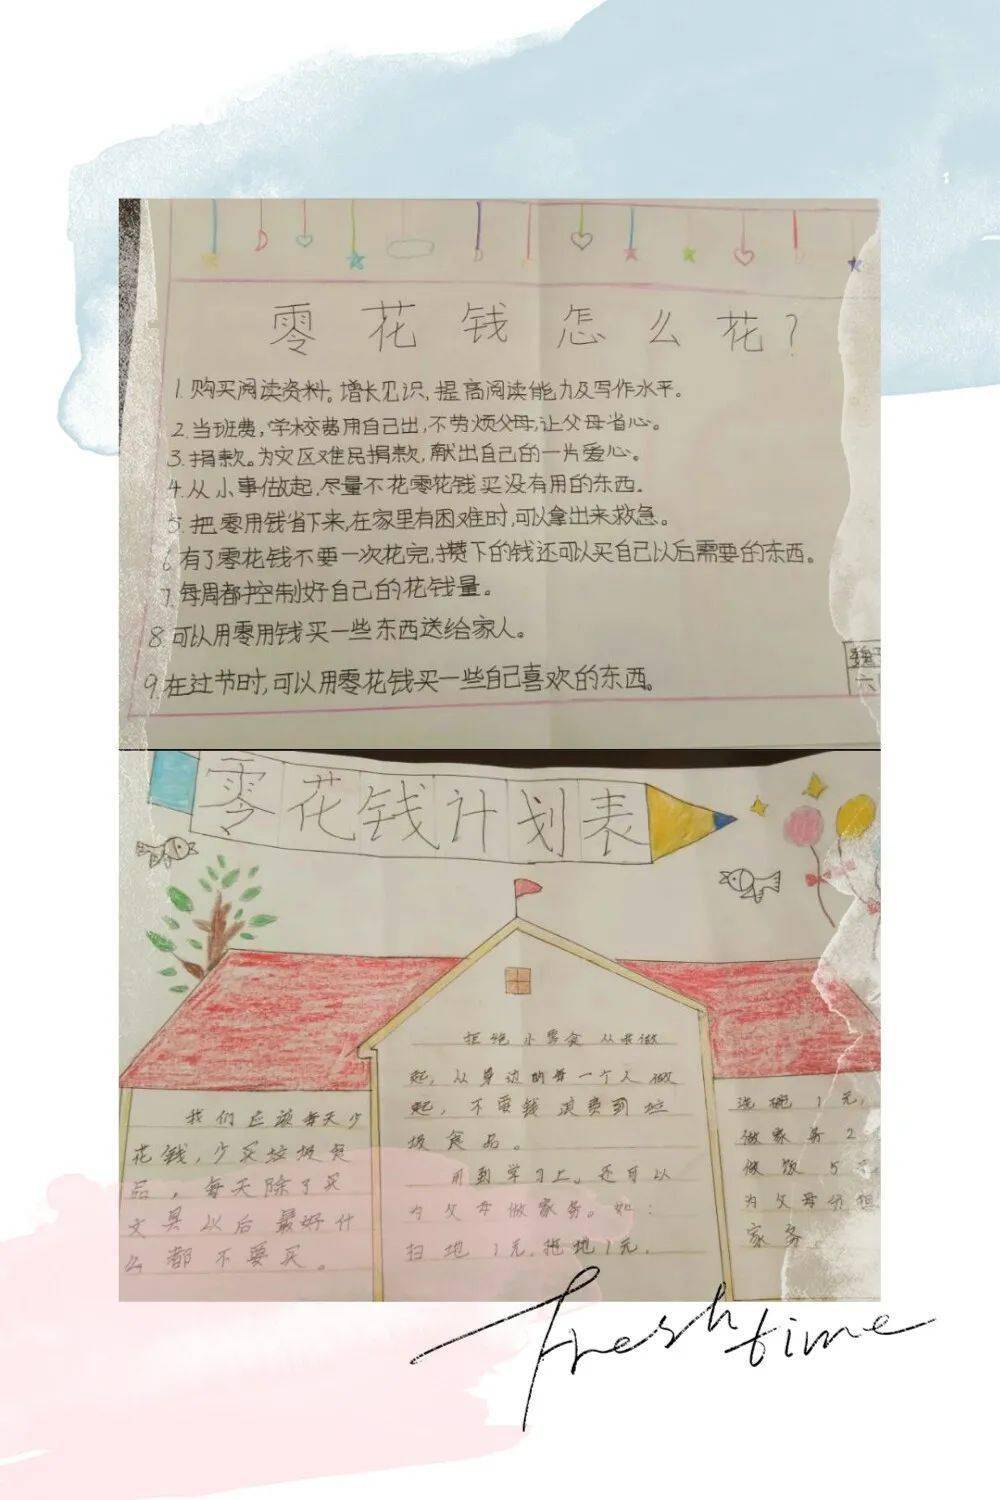 零花钱怎么花?
1.购买阅读资料。增长见识,提高阅读能力及写作水平。
2.当班费,学校费用自己出,不劳烦父母,让父母省心。
3.捐款。为灾区难民捐款,献出自己的一片爱心。
4.从小事做起,尽量不花零花钱买没有用的东西。
5.把零用钱省下来,在家里有困难时,可以拿出来救急。
6.有了零花钱不要一次花完,攒下的钱还可以买自己以后需要的东西。
7.每周都控制好自己的花钱量。
8.可以用零用钱买一些东西送给家人。
9.在过节时,可以用零花钱买一些自己喜欢的东西。
六
零花钱计划表
我们应该每天少
花钱,少买垃圾食
品,每天除了买
文具以后最好什
么都不要买。
拒绝小零食从我做
起,从身边的每一个人做
起,不要钱浪费到垃
圾食品。
用到学习上。还可以
为父母做家务。如:
扫地1元,拖地1元,
洗碗1元,
做家务2
做饭5元
为父母分担
家务
Fresh time